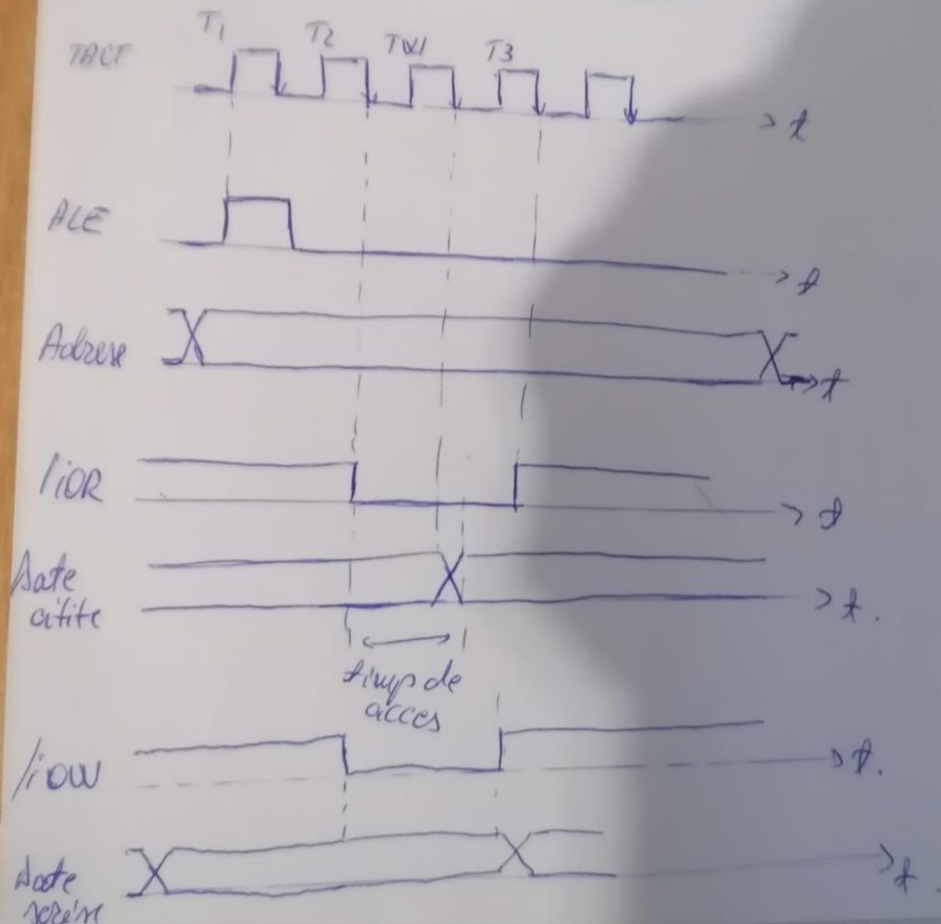 T1 T2 TW T3
TACT
t
ALE
t
Adrese
t
/IOR
t
Date
citite
t.
timp de
acces
/IOW
t.
Date
scrise
t